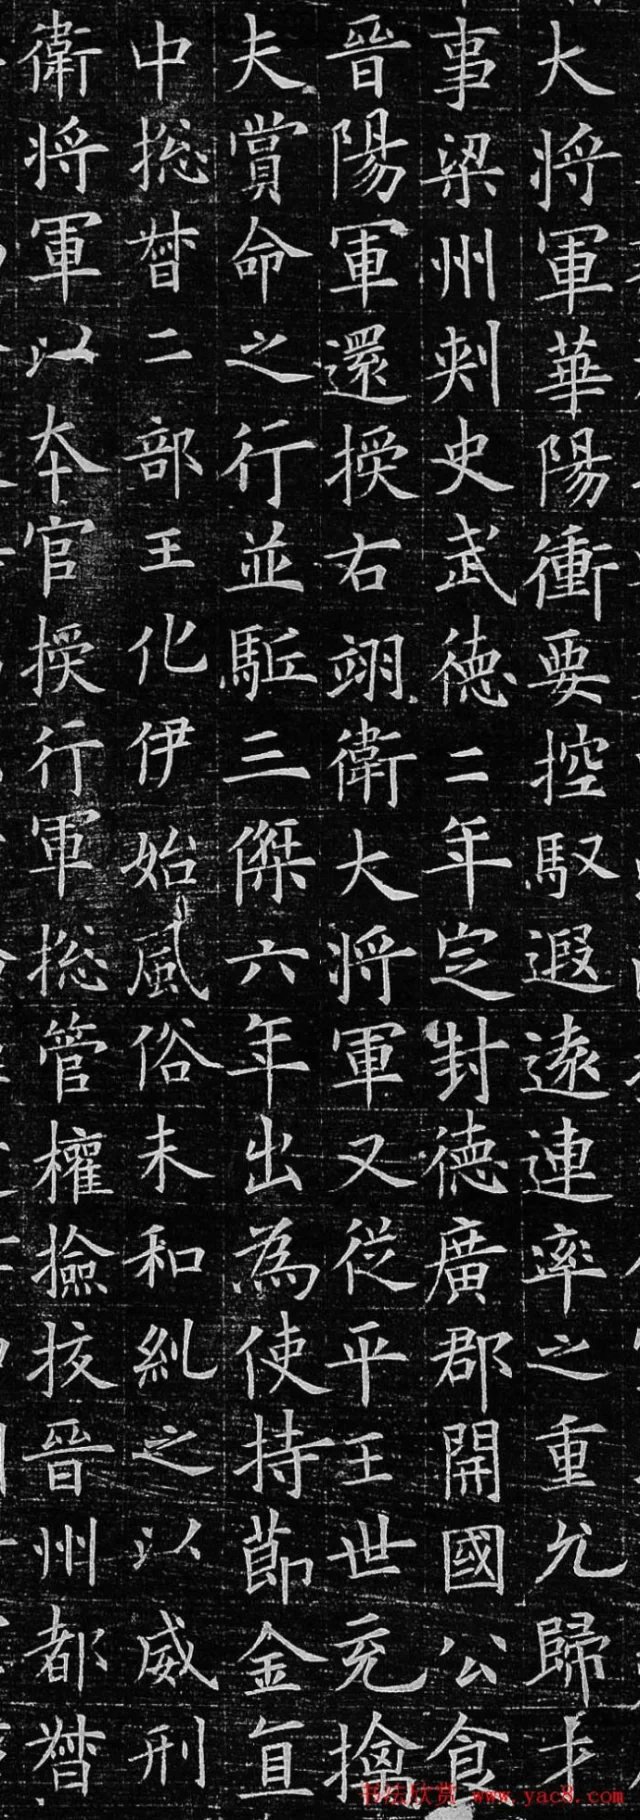 大將軍華陽衝要控馭遐遠連率之重允歸
事梁州刺史武德二年定封德廣郡開國公食
晉陽軍還授右翊衛大將軍又從平王世充擒
夫賞命之行並駈三傑六年出為使持節金
中揔督二部王化伊始風俗未和糺之以威刑
衛將軍以本官授行軍揔管權撿挍晉州都督
书法欣赏 www.yac8.com